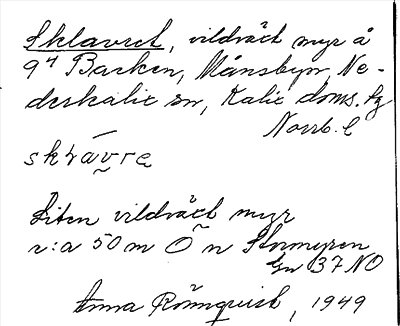 Sklavret, vildväxt myr å
9⁴ Backen, Månsbyn, Ne-
derkalix sn, Kalix doms. tg
Norrb. l
Liten vildväxt myr
c:a 50 m Ö n Stormyren
Gn 37 NO
Anna Rönnquist, 1949